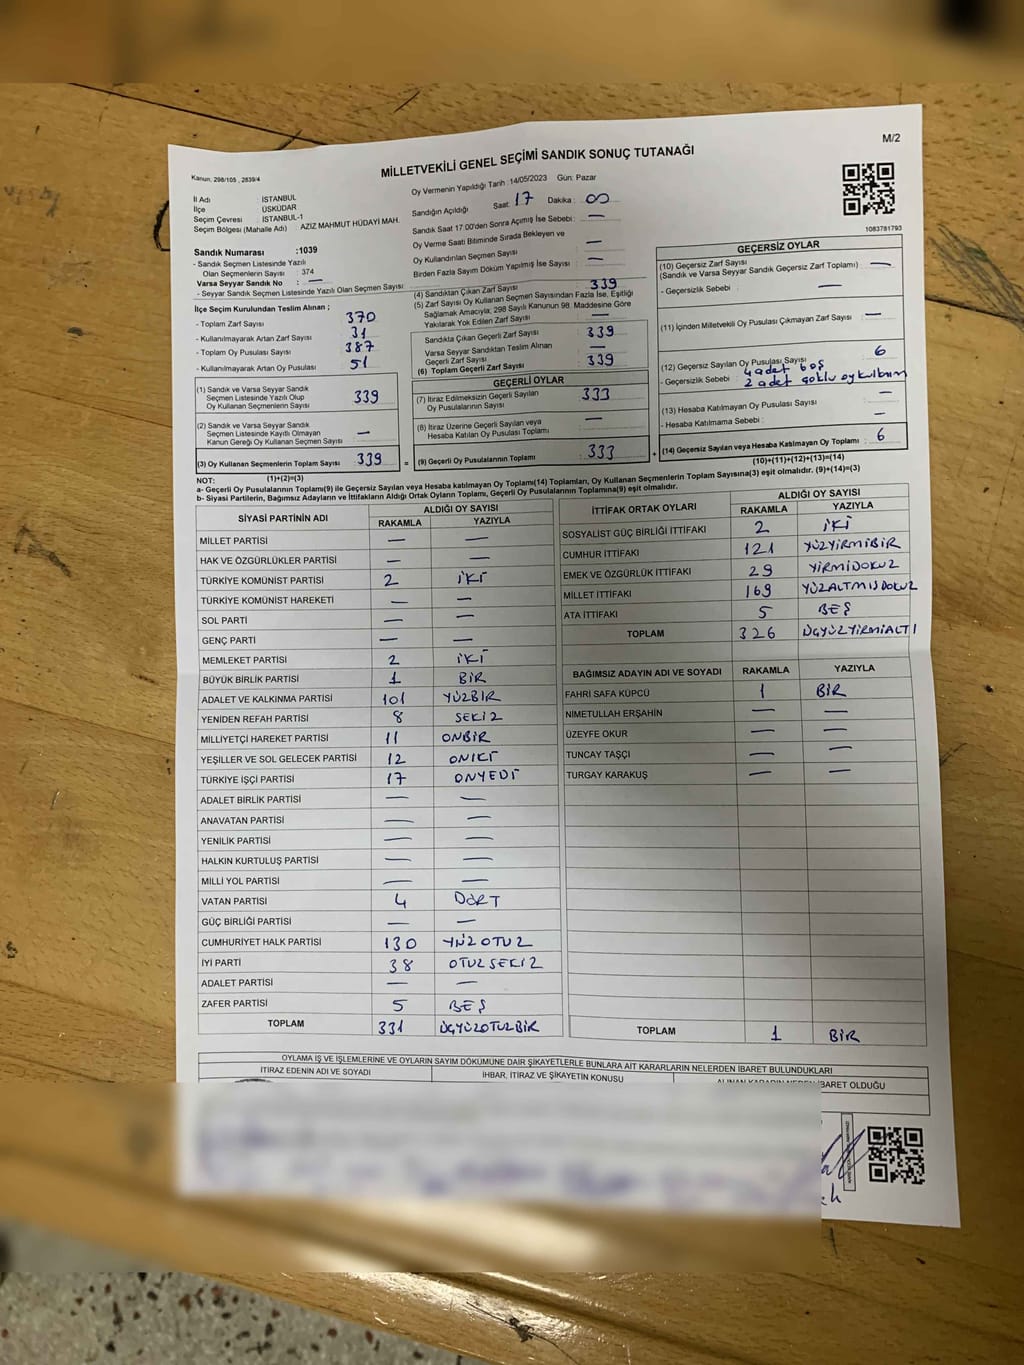 M/2
MİLLETVEKİLİ GENEL SEÇİMİ SANDIK SONUÇ TUTANAĞI
Kanun, 298/105 , 2839/4
Oy Vermenin Yapıldığı Tarih : 14/05/2023 Gün: Pazar
İl Adı : İSTANBUL
İlçe : ÜSKÜDAR
Seçim Çevresi : İSTANBUL-1
Seçim Bölgesi (Mahalle Adı) : AZİZ MAHMUT HÜDAYİ MAH.
Sandığın Açıldığı Saat: 17 Dakika : 00
Sandık Saat 17.00'den Sonra Açımış İse Sebebi : —
Oy Verme Saati Bitiminde Sırada Bekleyen ve
Oy Kullandırılan Seçmen Sayısı : —
Birden Fazla Sayım Döküm Yapılmış İse Sayısı : —
1083781793
Sandık Numarası :1039
- Sandık Seçmen Listesinde Yazılı
Olan Seçmenlerin Sayısı : 374
Varsa Seyyar Sandık No : —
- Seyyar Sandık Seçmen Listesinde Yazılı Olan Seçmen Sayısı :
İlçe Seçim Kurulundan Teslim Alınan ;
- Toplam Zarf Sayısı : 370
- Kullanılmayarak Artan Zarf Sayısı : 31
- Toplam Oy Pusulası Sayısı : 387
- Kullanılmayarak Artan Oy Pusulası : 51
(1) Sandık ve Varsa Seyyar Sandık
Seçmen Listesinde Yazılı Olup
Oy Kullanan Seçmenlerin Sayısı : 339
(2) Sandık ve Varsa Seyyar Sandık
Seçmen Listesinde Kayıtlı Olmayan
Kanun Gereği Oy Kullanan Seçmen Sayısı : —
(3) Oy Kullanan Seçmenlerin Toplam Sayısı : 339
(1)+(2)=(3)
(4) Sandıktan Çıkan Zarf Sayısı : 339
(5) Zarf Sayısı Oy Kullanan Seçmen Sayısından Fazla İse, Eşitliği
Sağlamak Amacıyla; 298 Sayılı Kanunun 98. Maddesine Göre
Yakılarak Yok Edilen Zarf Sayısı : —
Sandıkta Çıkan Geçerli Zarf Sayısı : 339
Varsa Seyyar Sandıktan Teslim Alınan
Geçerli Zarf Sayısı : —
(6) Toplam Geçerli Zarf Sayısı : 339
GEÇERLİ OYLAR
(7) İtiraz Edilmeksizin Geçerli Sayılan
Oy Pusulalarının Sayısı : 333
(8) İtiraz Üzerine Geçerli Sayılan veya
Hesaba Katılan Oy Pusulası Toplamı : —
= (9) Geçerli Oy Pusulalarının Toplamı : 333 +
GEÇERSİZ OYLAR
(10) Geçersiz Zarf Sayısı
(Sandık ve Varsa Seyyar Sandık Geçersiz Zarf Toplamı) : —
- Geçersizlik Sebebi : —
(11) İçinden Milletvekili Oy Pusulası Çıkmayan Zarf Sayısı : —
(12) Geçersiz Sayılan Oy Pusulası Sayısı : 6
- Geçersizlik Sebebi : 4 adet boş
2 adet çoklu oy kullanım
(13) Hesaba Katılmayan Oy Pusulası Sayısı : —
- Hesaba Katılmama Sebebi : —
(14) Geçersiz Sayılan veya Hesaba Katılmayan Oy Toplamı : 6
(10)+(11)+(12)+(13)=(14)
NOT:
a- Geçerli Oy Pusulalarının Toplamı(9) ile Geçersiz Sayılan veya Hesaba katılmayan Oy Toplamı(14) Toplamları, Oy Kullanan Seçmenlerin Toplam Sayısına(3) eşit olmalıdır. (9)+(14)=(3)
b- Siyasi Partilerin, Bağımsız Adayların ve İttifakların Aldığı Ortak Oyların Toplamı, Geçerli Oy Pusulalarının Toplamına(9) eşit olmalıdır.
SİYASİ PARTİNİN ADI ALDIĞI OY SAYISI
RAKAMLA YAZIYLA
MİLLET PARTİSİ — —
HAK VE ÖZGÜRLÜKLER PARTİSİ — —
TÜRKİYE KOMÜNİST PARTİSİ 2 İKİ
TÜRKİYE KOMÜNİST HAREKETİ — —
SOL PARTİ — —
GENÇ PARTİ — —
MEMLEKET PARTİSİ 2 İKİ
BÜYÜK BİRLİK PARTİSİ 1 BİR
ADALET VE KALKINMA PARTİSİ 101 YÜZBİR
YENİDEN REFAH PARTİSİ 8 SEKİZ
MİLLİYETÇİ HAREKET PARTİSİ 11 ONBİR
YEŞİLLER VE SOL GELECEK PARTİSİ 12 ONİKİ
TÜRKİYE İŞÇİ PARTİSİ 17 ONYEDİ
ADALET BİRLİK PARTİSİ — —
ANAVATAN PARTİSİ — —
YENİLİK PARTİSİ — —
HALKIN KURTULUŞ PARTİSİ — —
MİLLİ YOL PARTİSİ — —
VATAN PARTİSİ 4 DÖRT
GÜÇ BİRLİĞİ PARTİSİ — —
CUMHURİYET HALK PARTİSİ 130 YÜZOTUZ
İYİ PARTİ 38 OTUZSEKİZ
ADALET PARTİSİ — —
ZAFER PARTİSİ 5 BEŞ
TOPLAM 331 ÜÇYÜZOTUZBİR
İTTİFAK ORTAK OYLARI ALDIĞI OY SAYISI
RAKAMLA YAZIYLA
SOSYALİST GÜÇ BİRLİĞİ İTTİFAKI 2 İKİ
CUMHUR İTTİFAKI 121 YÜZYİRMİBİR
EMEK VE ÖZGÜRLÜK İTTİFAKI 29 YİRMİDOKUZ
MİLLET İTTİFAKI 169 YÜZALTMIŞDOKUZ
ATA İTTİFAKI 5 BEŞ
TOPLAM 326 ÜÇYÜZYİRMİALTI
BAĞIMSIZ ADAYIN ADI VE SOYADI RAKAMLA YAZIYLA
FAHRİ SAFA KÜPCÜ 1 BİR
NİMETULLAH ERŞAHİN — —
ÜZEYFE OKUR — —
TUNCAY TAŞÇI — —
TURGAY KARAKUŞ — —
TOPLAM 1 BİR
OYLAMA İŞ VE İŞLEMLERİNE VE OYLARIN SAYIM DÖKÜMÜNE DAİR ŞİKAYETLERLE BUNLARA AİT KARARLARIN NELERDEN İBARET BULUNDUKLARI
İTİRAZ EDENİN ADI VE SOYADI İHBAR, İTİRAZ VE ŞİKAYETİN KONUSU ALINAN KARARIN NEDEN İBARET OLDUĞU